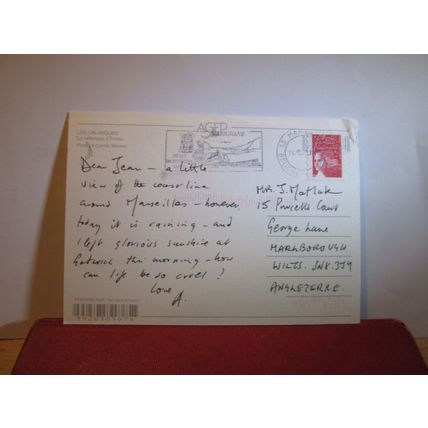 LES CALANQUES
AGFP
MARIGNANE
Dear Jean - a little
view of the coast line
around Marseilles - however
today it is raining - and
I left glorious sunshine at
Gatwick this morning - how
can life be so cruel?
love
A.
MR. J. Matlak
15 Purcells Court
George Lane
MARLBOROUGH
WILTS. SN8
ANGLETERRE